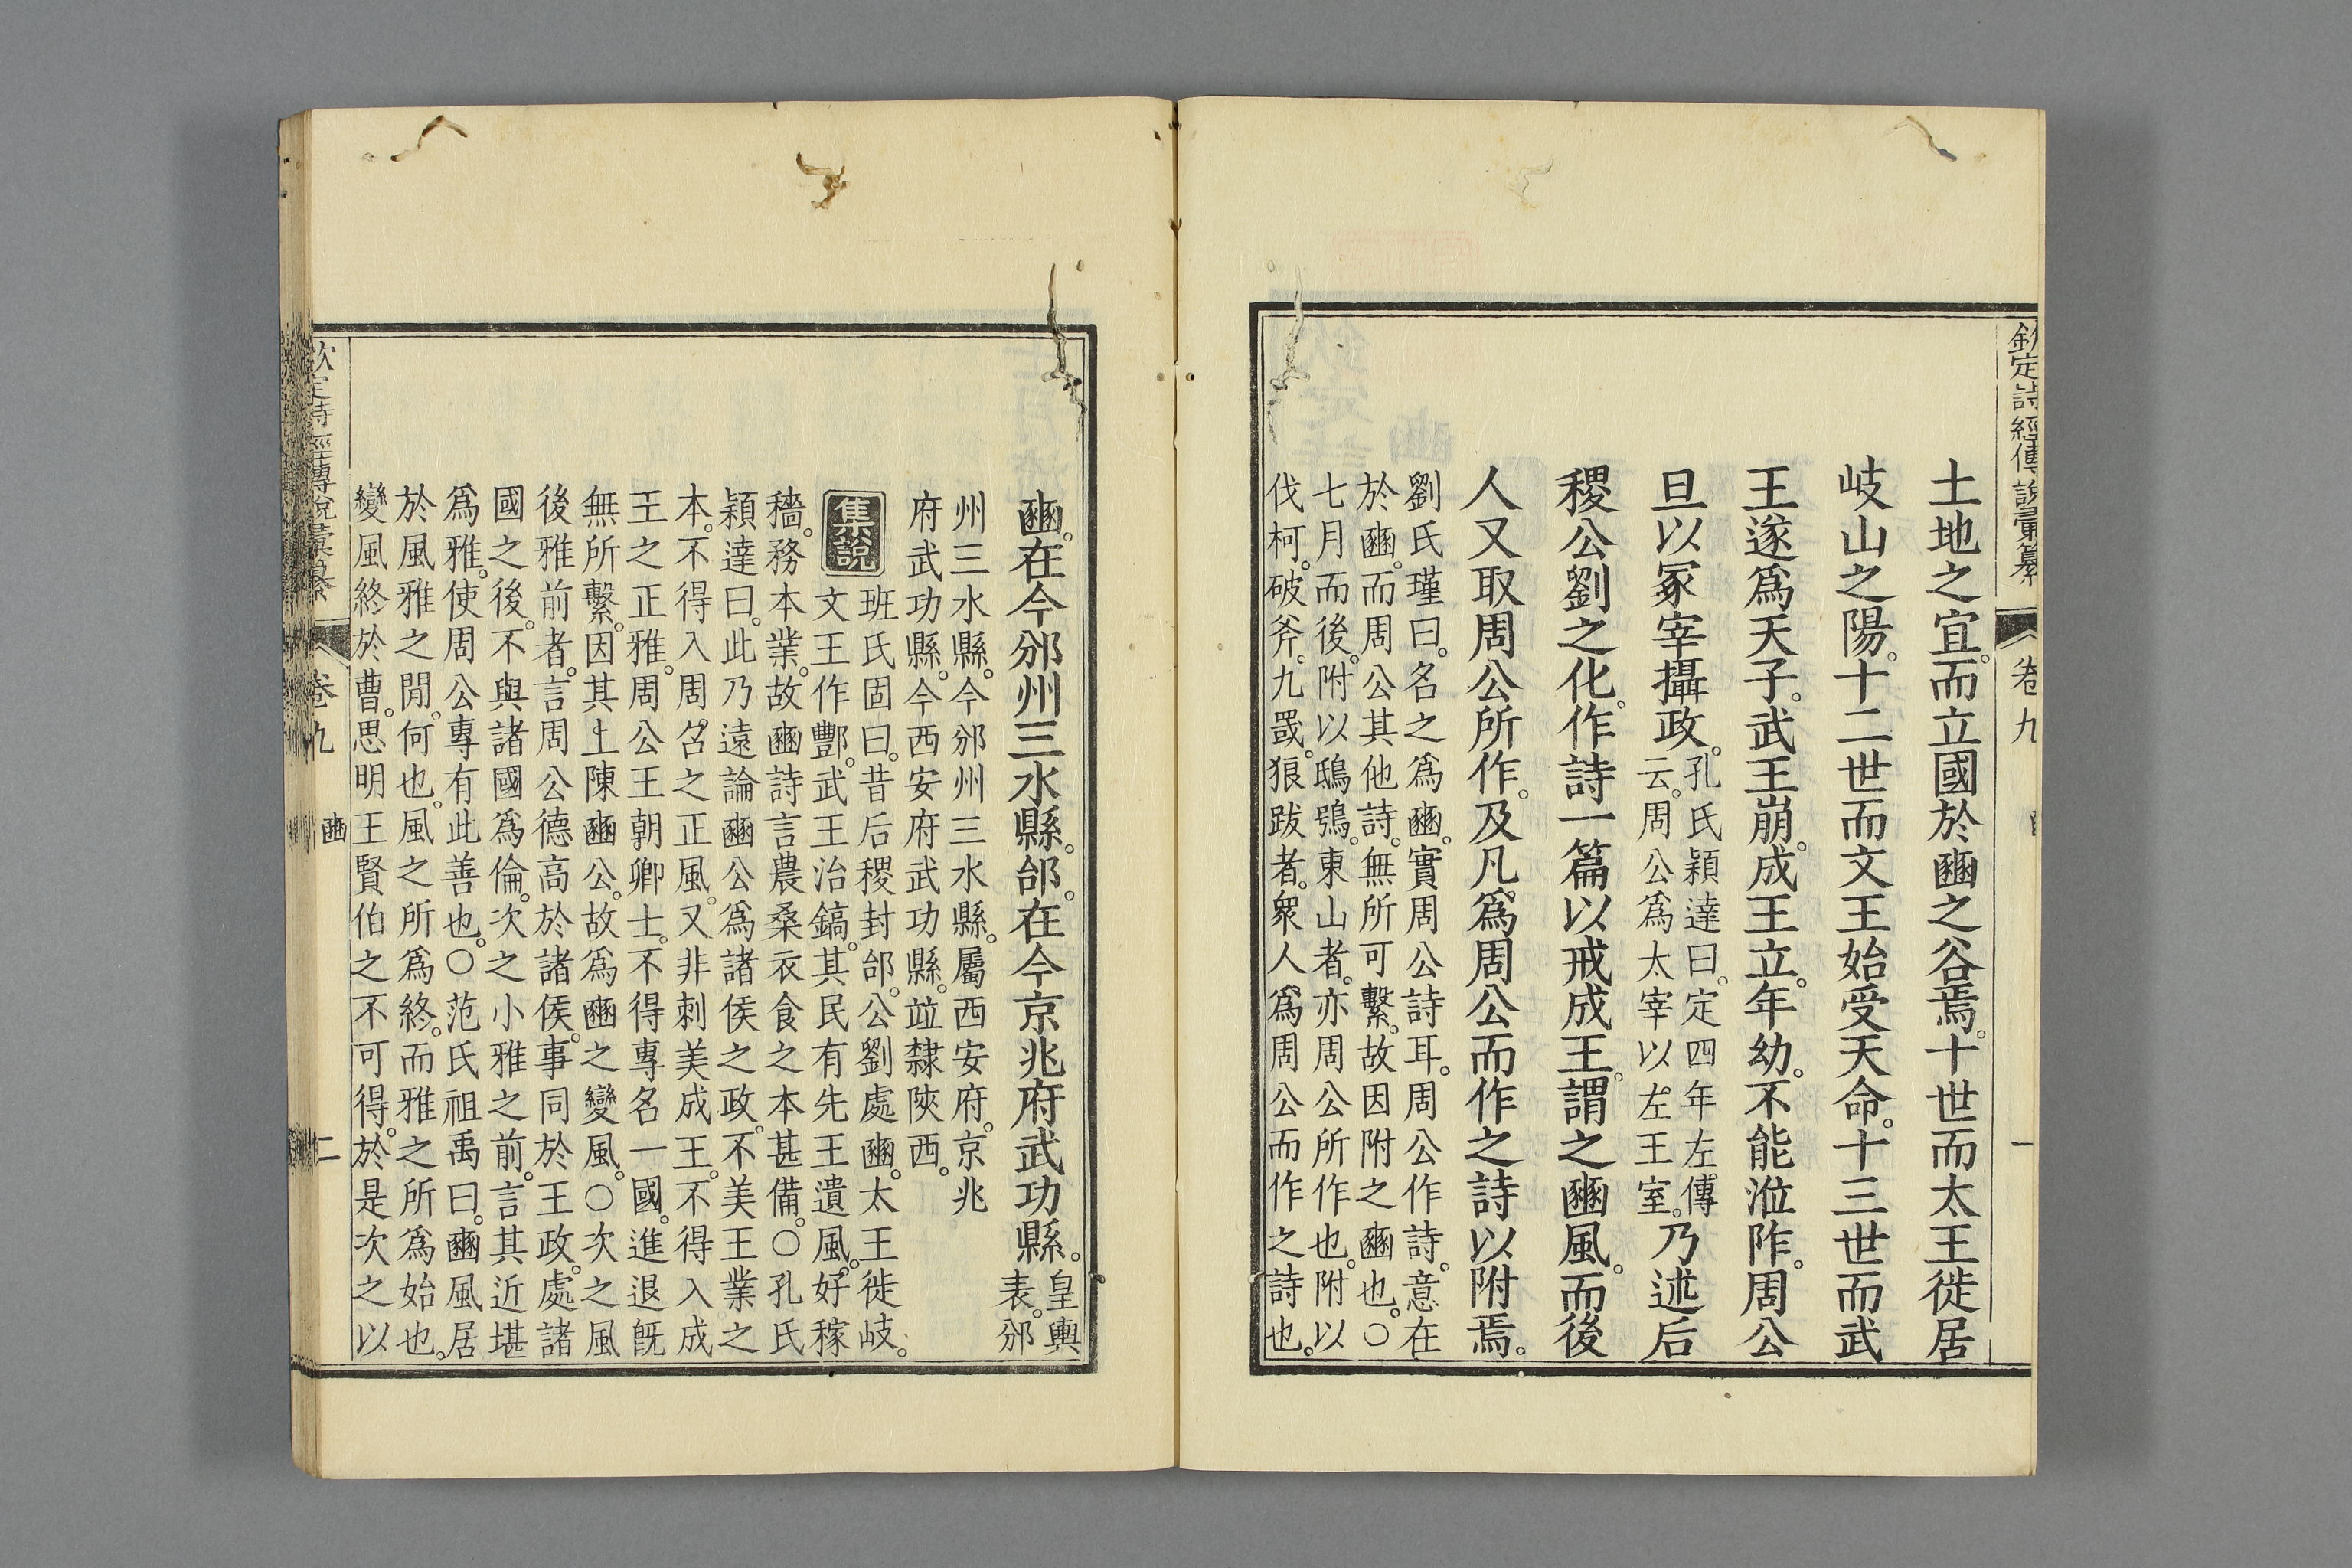 欽定詩經傳說彙纂 卷九 一
土地之宜。而立國於豳之谷焉。十世而太王徙居
岐山之陽。十二世而文王始受天命。十三世而武
王遂爲天子。武王崩。成王立。年幼。不能涖阼。周公
旦以冢宰攝政。孔氏穎達曰。定四年左傳
云。周公爲太宰以左王室。乃述后
稷公劉之化。作詩一篇以戒成王。謂之豳風。而後
人又取周公所作。及凡爲周公而作之詩以附焉。
劉氏瑾曰。名之爲豳。實周公詩耳。周公作詩。意在
於豳。而周公其他詩。無所可繫。故因附之豳也。○
七月而後。附以鴟鴞。東山者。亦周公所作也。附以
伐柯。破斧。九罭。狼跋者。衆人爲周公而作之詩也。
豳。在今邠州三水縣。邰。在今京兆府武功縣。皇輿
表。邠
州三水縣。今邠州三水縣。屬西安府。京兆
府武功縣。今西安府武功縣。竝隸陝西。
集說 班氏固曰。昔后稷封邰。公劉處豳。太王徙岐。
文王作酆。武王治鎬。其民有先王遺風。好稼
穡。務本業。故豳詩言農桑衣食之本甚備。○孔氏
穎達曰。此乃遠論豳公爲諸侯之政。不美王業之
本。不得入周召之正風。又非刺美成王。不得入成
王之正雅。周公王朝卿士。不得專名一國。進退旣
無所繫。因其上陳豳公。故爲豳之變風。○次之風
後雅前者。言周公德高於諸侯。事同於王政。處諸
國之後。不與諸國爲倫。次之小雅之前。言其近堪
爲雅。使周公專有此善也。○范氏祖禹曰。豳風居
於風雅之閒。何也。風之所爲終。而雅之所爲始也。
變風終於曹。思明王賢伯之不可得。於是次之以
欽定詩經傳說彙纂 卷九 豳 二